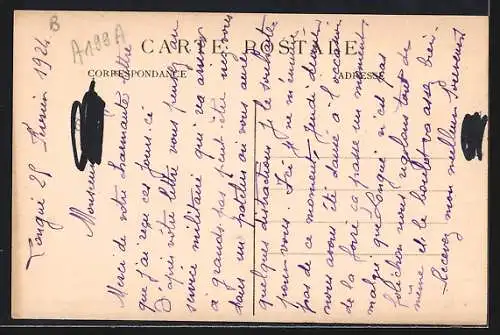 B
A199A
CARTE POSTALE
CORRESPONDANCE
ADRESSE
Longué 25 Février 1924
Monsieur
Merci de votre charmante lettre
que j'ai reçue ces jours-ci
D'après votre lettre vous pensez au
service militaire qui va arriver
à grands pas peut-être irez-vous
dans un patelin où vous aurez
quelques distractions je le souhaite
pour vous. Ici je ne m'ennuie
pas de ce moment, jeudi dernier
nous avons été danser à l'occasion
de la foire ça passe un moment
malgré que Longué n'est pas
folichon nous rigolons tout de
même et le boulot va assez bien
Recevez mon meilleur souvenir